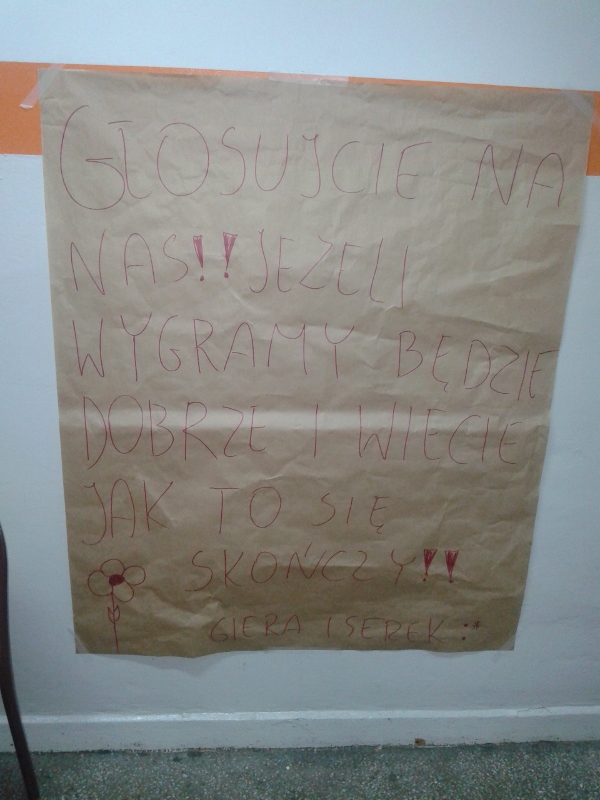 GŁOSUJCIE NA
NAS!! JEŻELI
WYGRAMY BĘDZIE
DOBRZE I WIECIE
JAK TO SIĘ
SKOŃCZY!!
GIERA I SEREK :*